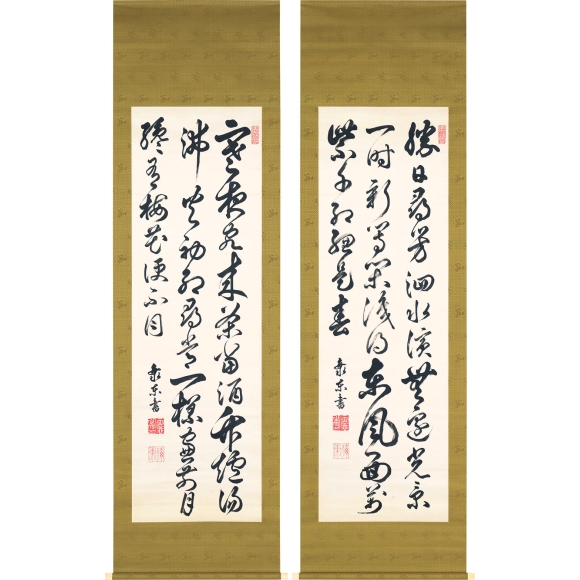 勝日尋芳泗水濱無邊光景
一時新等閑識得東風面萬
紫千紅總是春
東書
寒夜客來茶當酒竹爐湯
沸火初紅尋常一樣窗前月
纔有梅花便不同
東書